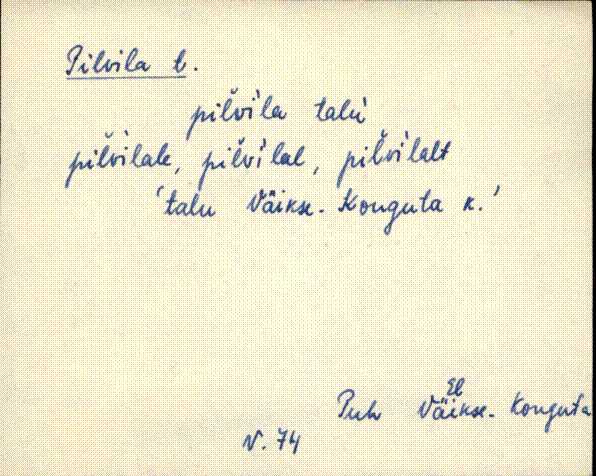 Pilvila t.
pilvila talu
pilvilale, pilvilal, pilvilalt
'talu Väikse-Konguta k.'
El
Puh Väikse-Konguta
N. 74